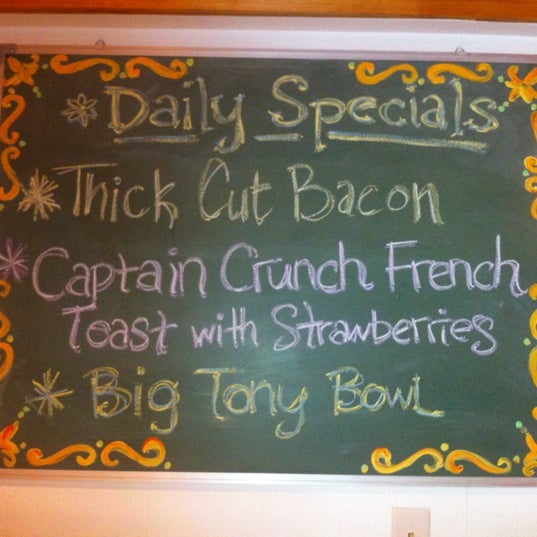 * Daily Specials
* Thick Cut Bacon
* Captain Crunch French
Toast with Strawberries
* Big Tony Bowl